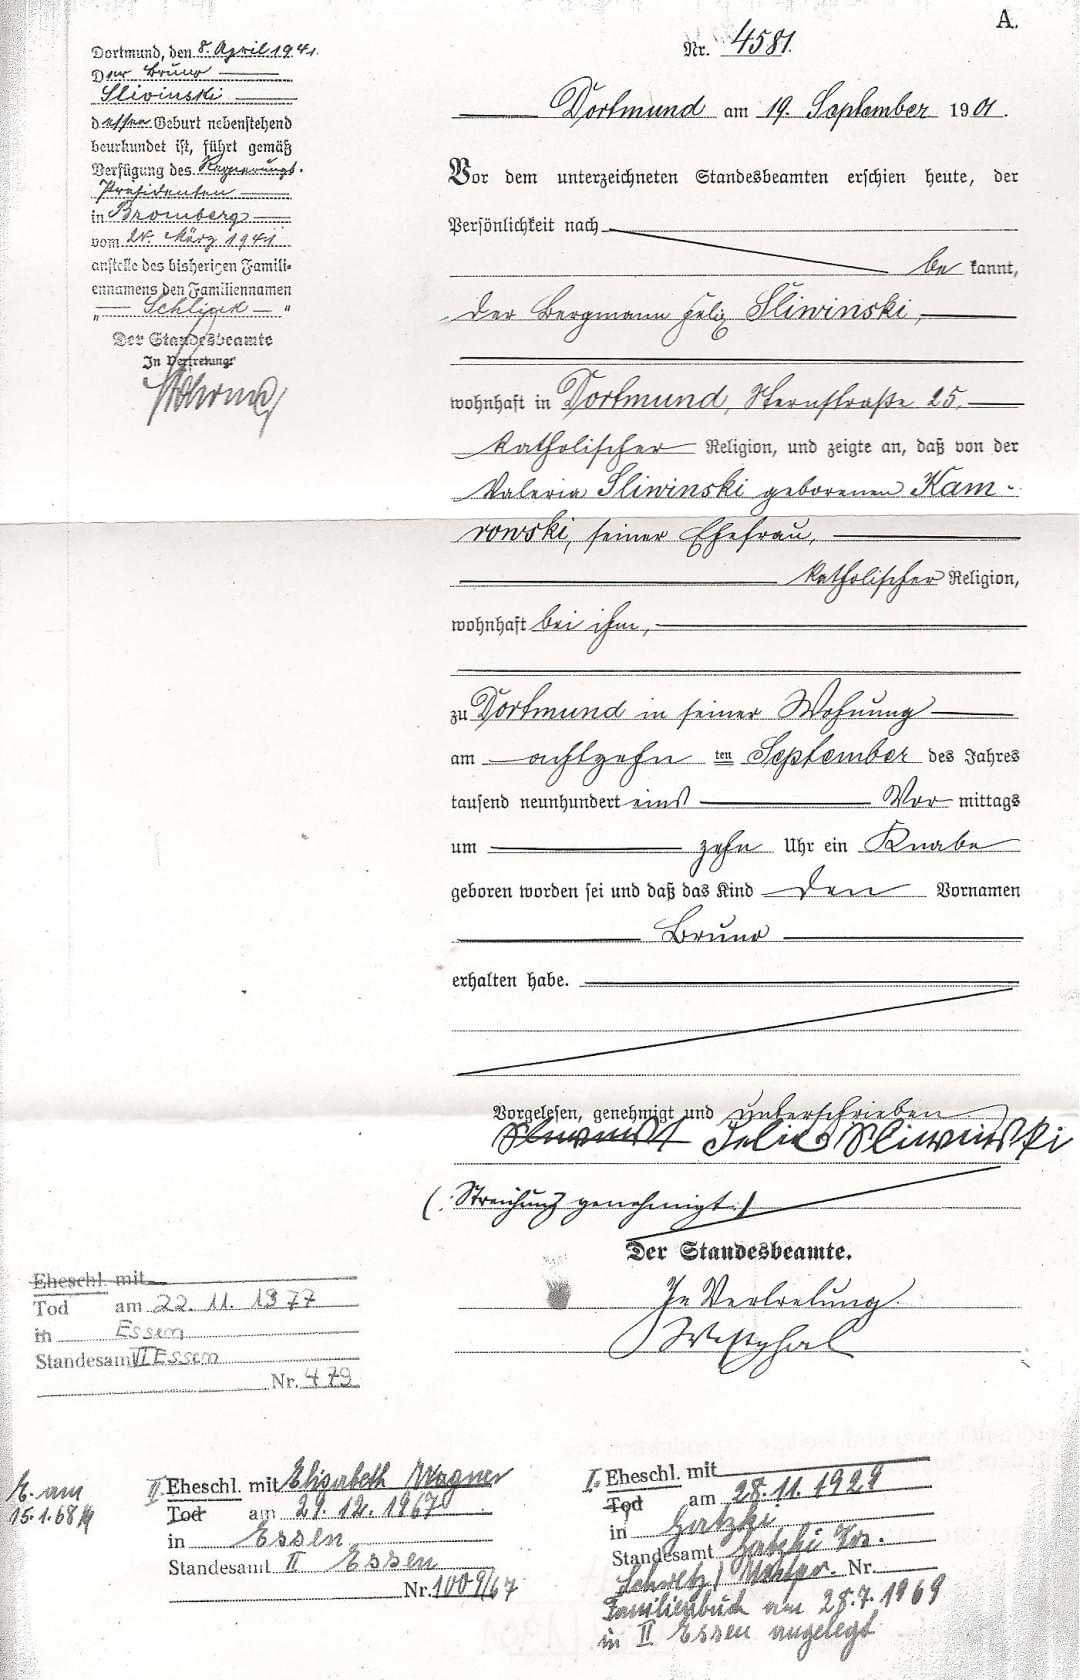 A.
Nr. 4581.
Dortmund am 19. September 1901.
Vor dem unterzeichneten Standesbeamten erschien heute, der
Persönlichkeit nach
bekannt,
der Bergmann Felix Śliwinski,
wohnhaft in Dortmund, Sternstraße 25.
katholischer Religion, und zeigte an, daß von der
Valeria Sliwinski geborenen Kam-
rowski, seiner Ehefrau,
katholischer Religion,
wohnhaft bei ihm,
zu Dortmund in seiner Wohnung
am achtzehn ten September des Jahres
tausend neunhundert eins Vor mittags
um zehn Uhr ein Knabe
geboren worden sei und daß das Kind den Vornamen
Bruno
erhalten habe.
Vorgelesen, genehmigt und unterschrieben
Felix Sliwinski
(: Streichung genehmigt.)
Der Standesbeamte.
In Vertretung.
Westphal
Dortmund, den 8. April 1941.
Der Bruno
Slivinski
dessen Geburt nebenstehend
beurkundet ist, führt gemäß
Verfügung des Regierungs-
Präsidenten
in Bromberg
vom 24. März 1941
anstelle des bisherigen Famili-
ennamens den Familiennamen
„Schlink"
Der Standesbeamte
In Vertretung:
Eheschl. mit
Tod am 22. 11. 1977
in Essen
Standesamt VI Essen
Nr. 479
E. am
15.1.68
II. Eheschl. mit Elisabeth Wagner
Tod am 29. 12. 1967
in Essen
Standesamt II Essen
Nr. 1009/67
I. Eheschl. mit
Tod am 28. 11. 1929
in Gatzki
Standesamt Gatzki Krs.
Schwetz / Westpr. Nr.
Familienbuch am 28.7.1969
in II Essen angelegt